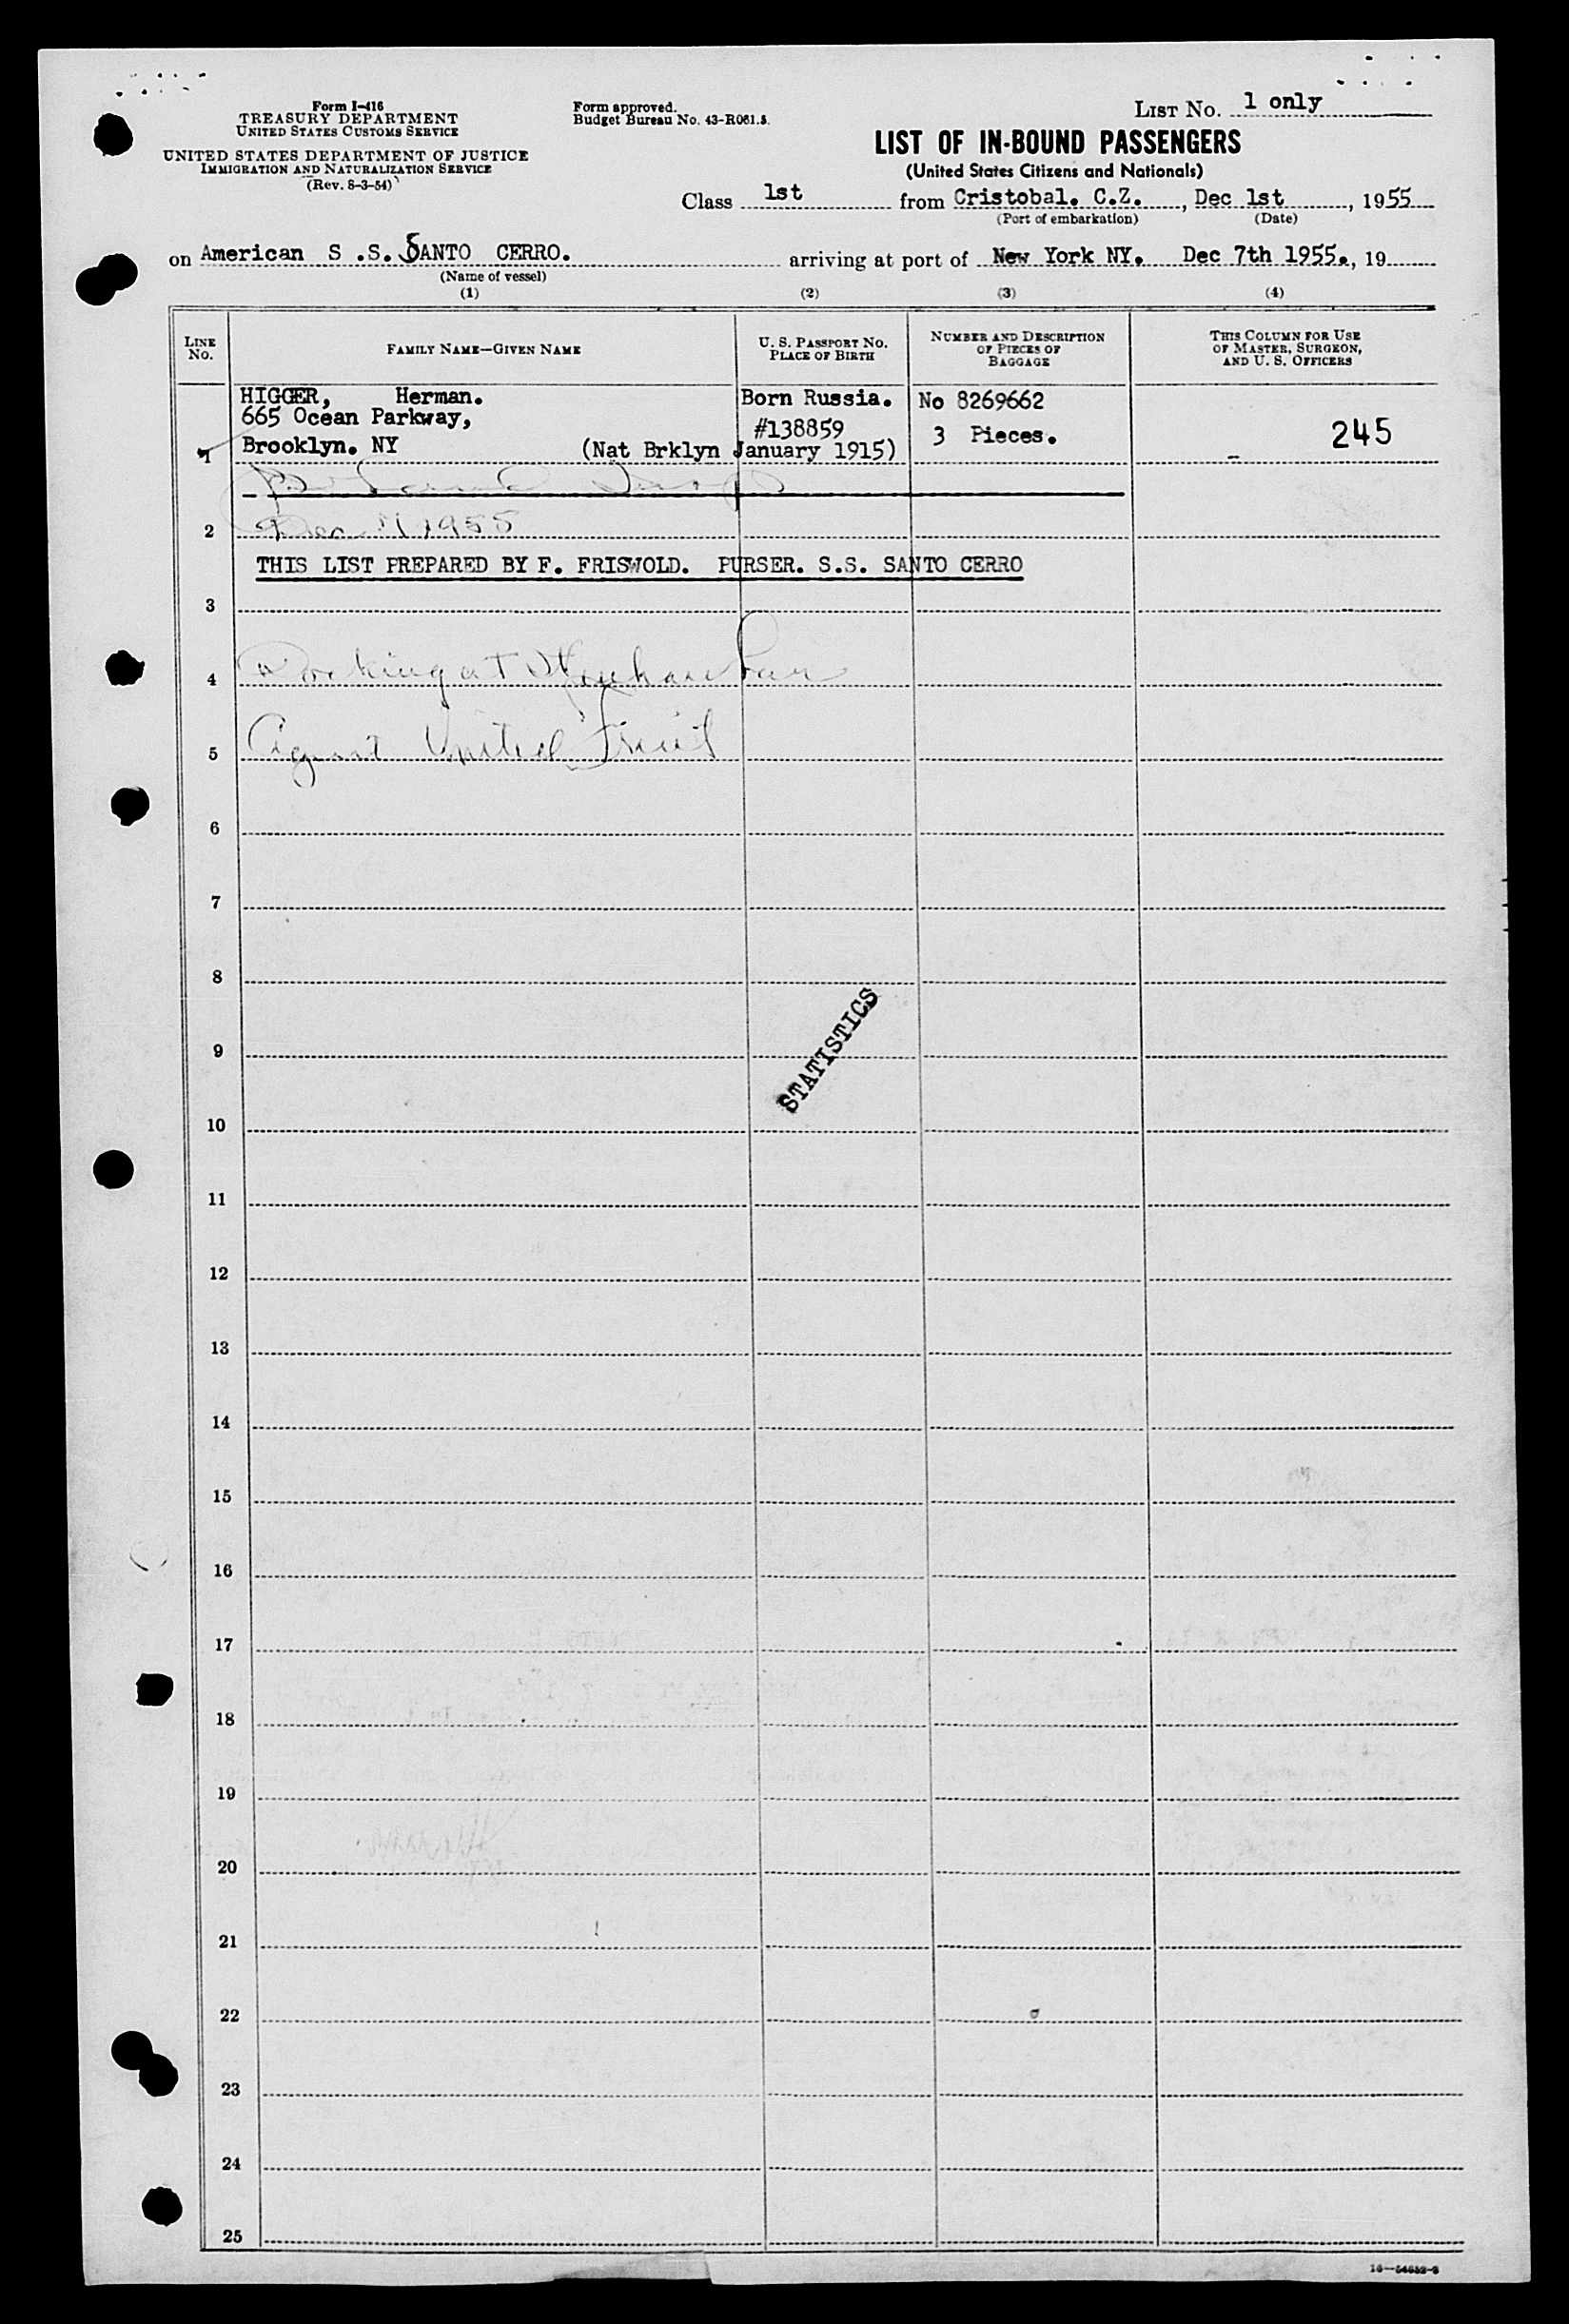 Form I-416
TREASURY DEPARTMENT
UNITED STATES CUSTOMS SERVICE
UNITED STATES DEPARTMENT OF JUSTICE
IMMIGRATION AND NATURALIZATION SERVICE
(Rev. 8-3-54)
Form approved.
Budget Bureau No. 43-R061.3.
LIST No. 1 only
LIST OF IN-BOUND PASSENGERS
(United States Citizens and Nationals)
Class 1st from Cristobal. C.Z. , Dec 1st , 1955
(Port of embarkation) (Date)
on American S .S. SANTO CERRO. arriving at port of New York NY. Dec 7th 1955., 19
(Name of vessel)
(1) (2) (3) (4)
LINE No. FAMILY NAME—GIVEN NAME U. S. PASSPORT NO. PLACE OF BIRTH NUMBER AND DESCRIPTION OF PIECES OF BAGGAGE THIS COLUMN FOR USE OF MASTER, SURGEON, AND U. S. OFFICERS
HIGGER, Herman. Born Russia. No 8269662
665 Ocean Parkway, #138859 3 Pieces. 245
1 Brooklyn. NY (Nat Brklyn January 1915)
2 Dec 1955
THIS LIST PREPARED BY F. FRISWOLD. PURSER. S.S. SANTO CERRO
3
4 Docking at
5 Agent United Fruit
6
7
8
STATISTICS
9
10
11
12
13
14
15
16
17
18
19
20
21
22
23
24
25